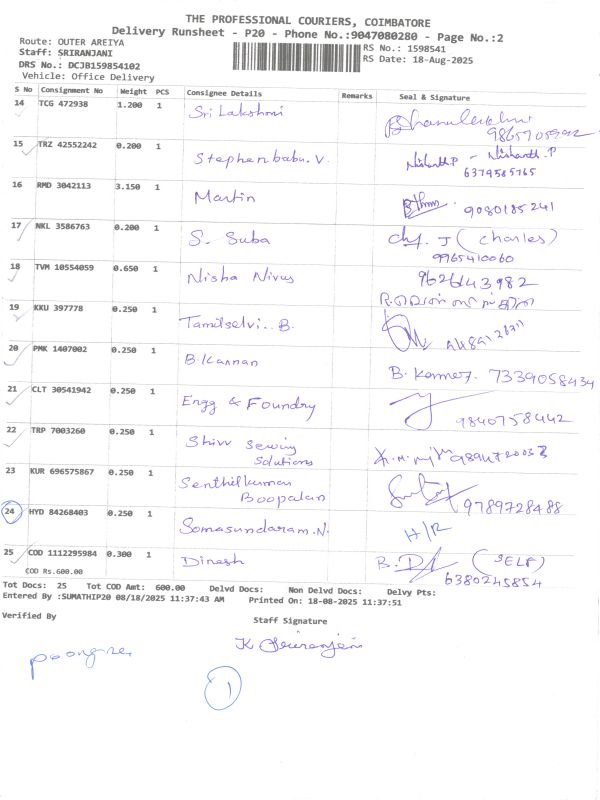 THE PROFESSIONAL COURIERS, COIMBATORE
Delivery Runsheet - P20 - Phone No.:9047080280 - Page No.:2
Route: OUTER AREIYA RS No.: 1598541
Staff: SRIRANJANI RS Date: 18-Aug-2025
DRS No.: DCJB159854102
Vehicle: Office Delivery
S No Consignment No Weight PCS Consignee Details Remarks Seal & Signature
14 TCG 472938 1.200 1 Sri Lakshmi
9865705992
15 TRZ 42552242 0.200 1 Stephenbabu.V. Nishanth.P - Nishanth.P
6379585765
16 RMD 3042113 3.150 1 Martin 9080185241
17 NKL 3586763 0.200 1 S. Suba J (Charles)
9965410060
18 TVM 10554059 0.650 1 Nisha Nivus 9626643982
19 KKU 397778 0.250 1 Tamilselvi..B.
20 PMK 1407002 0.250 1 B.Kannan B. 7339058434
21 CLT 30541942 0.250 1 Engg & Foundry 9840758442
22 TRP 7003260 0.250 1 Shiv Sewing
Solutions
23 KUR 696575867 0.250 1 Senthilkumar
Boopalan 9789728488
24 HYD 84268403 0.250 1 Somasundaram.N. H/R
25 COD 1112295984 0.300 1 Dinesh B. (SELF)
COD Rs.600.00 6380245854
Tot Docs: 25 Tot COD Amt: 600.00 Delvd Docs: Non Delvd Docs: Delvy Pts:
Entered By :SUMATHIP20 08/18/2025 11:37:43 AM Printed On: 18-08-2025 11:37:51
Verified By Staff Signature
K
1